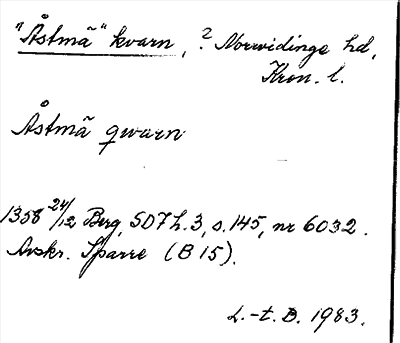 "Åstmã" kvarn, ? Norrvidinge hd,
Kron. l.
Åstmã qwarn
1358 24/12 Berg, SD 7 h. 3, s. 145, nr 6032.
Avskr. Sparre (B 15).
L.-t. D. 1983.